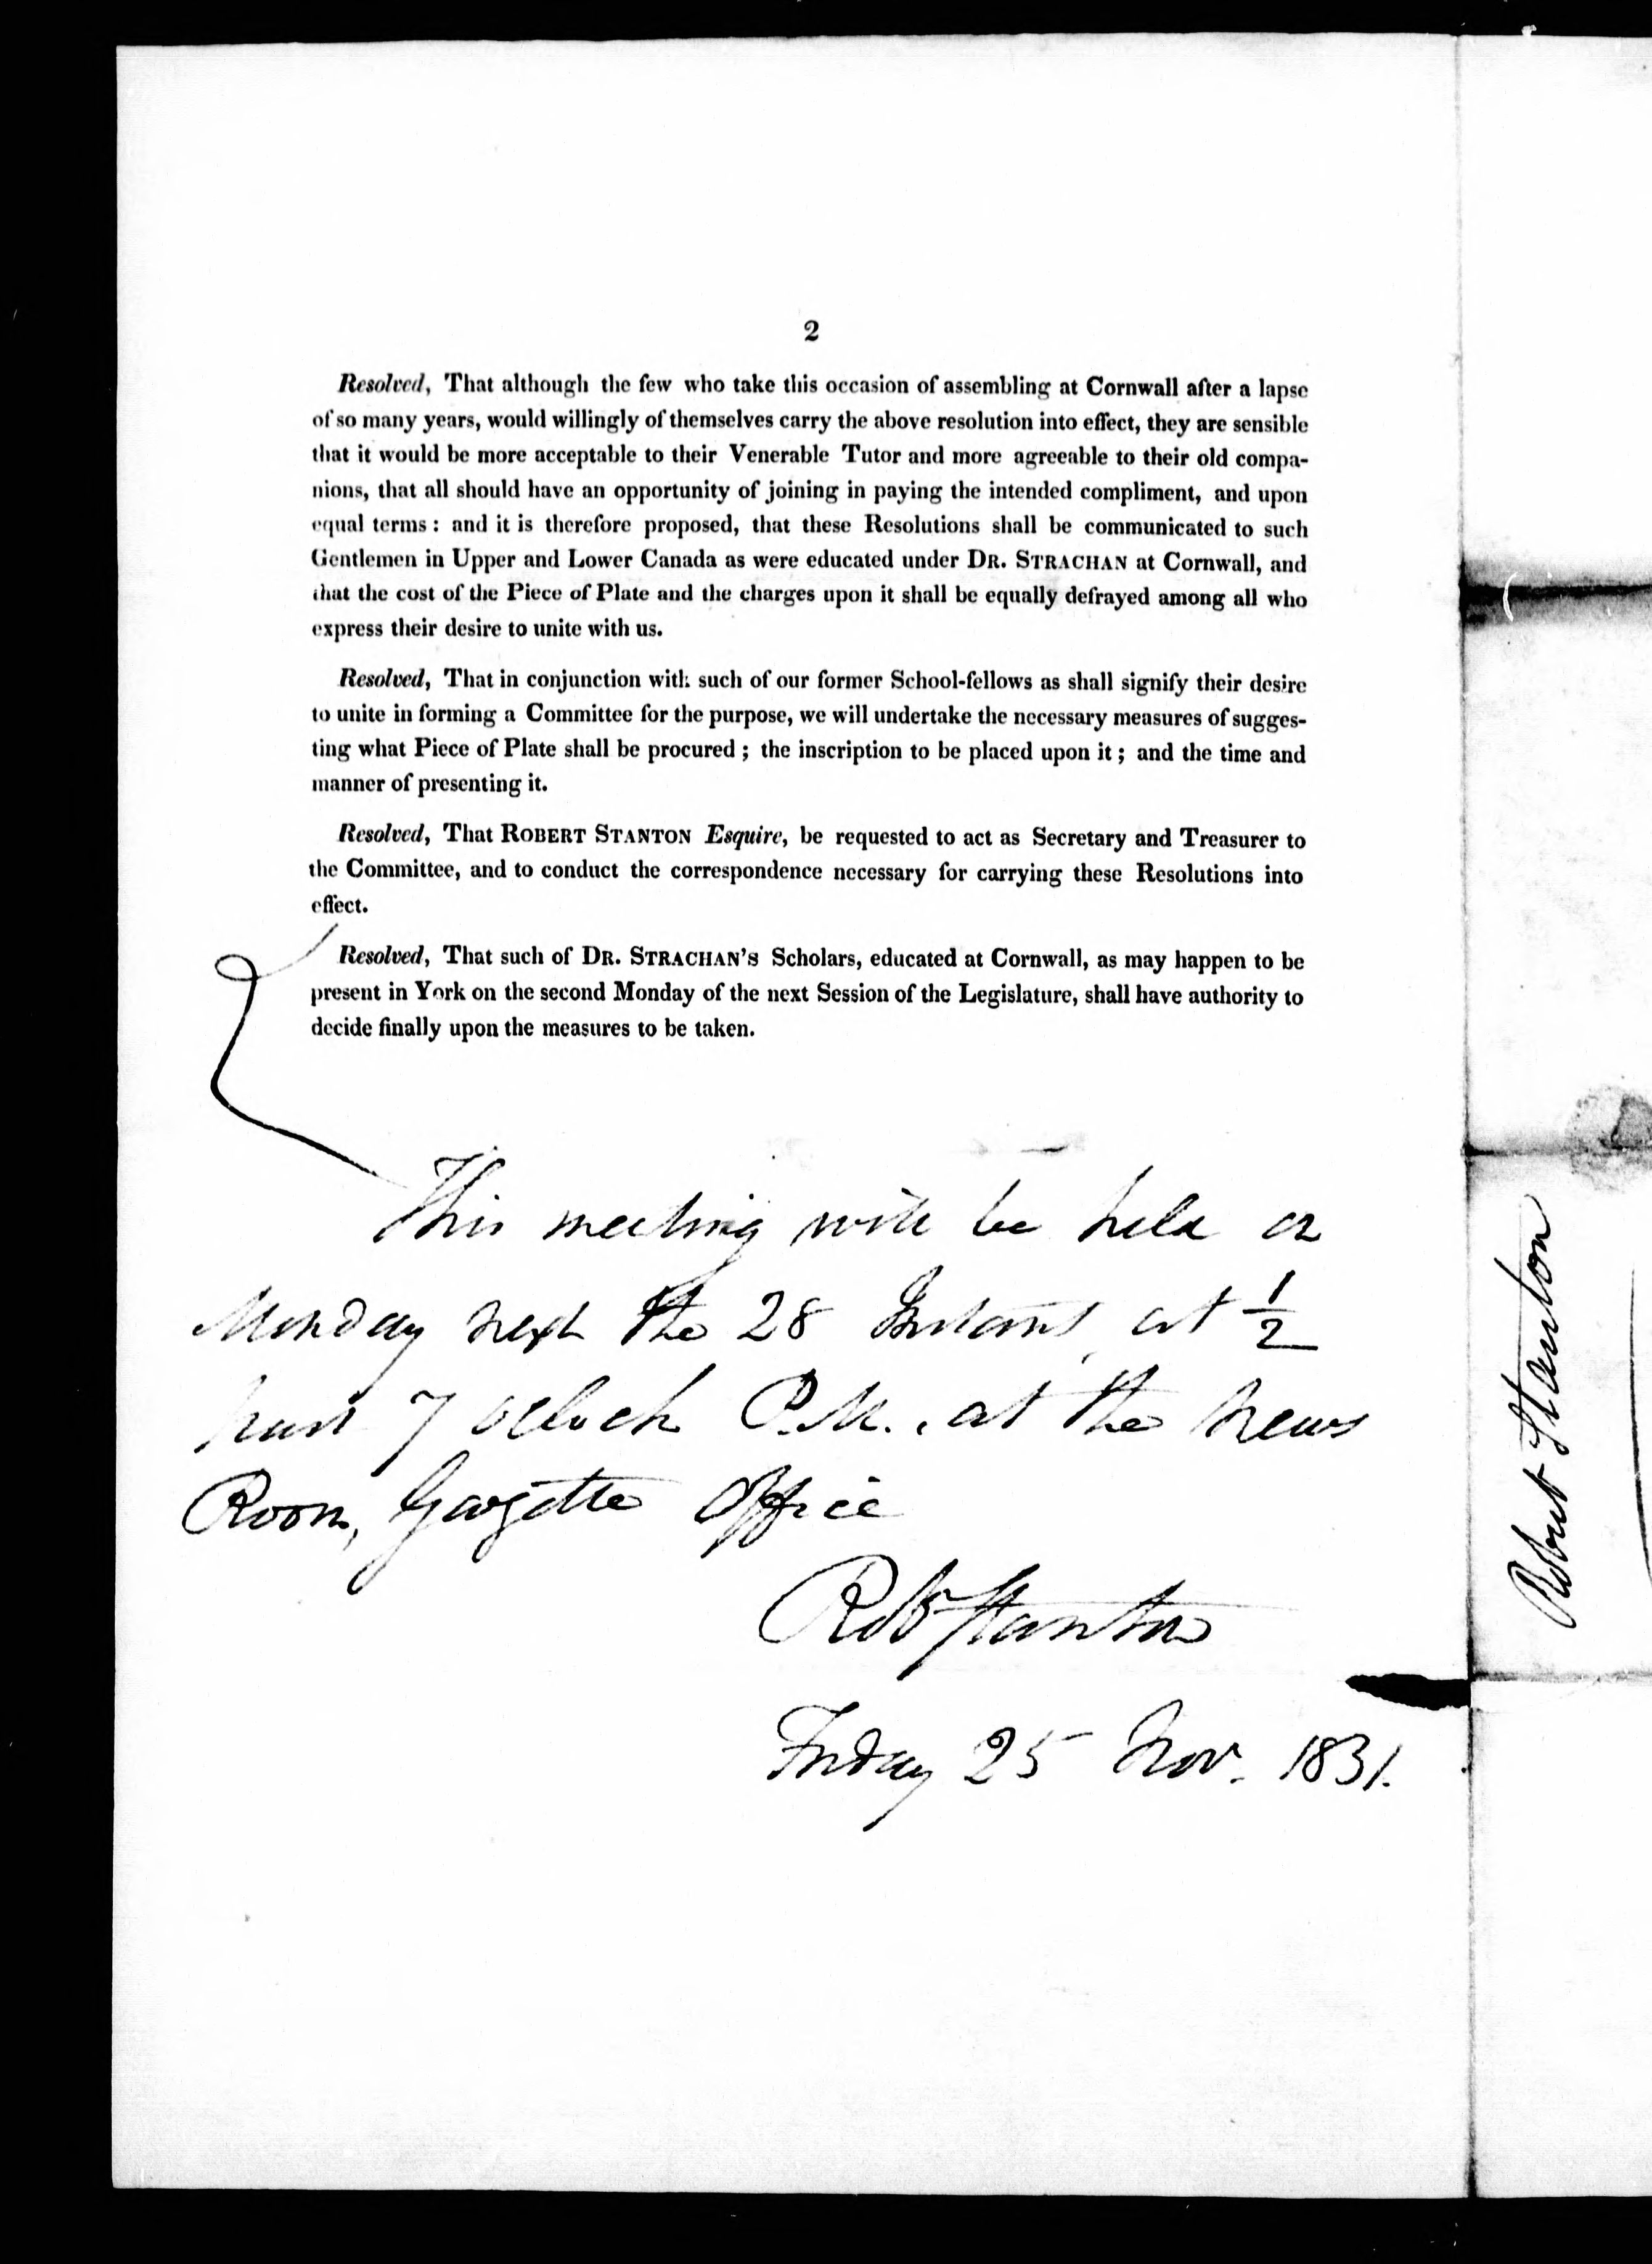 2
Resolved, That although the few who take this occasion of assembling at Cornwall after a lapse
of so many years, would willingly of themselves carry the above resolution into effect, they are sensible
that it would be more acceptable to their Venerable Tutor and more agreeable to their old compa-
nions, that all should have an opportunity of joining in paying the intended compliment, and upon
equal terms : and it is therefore proposed, that these Resolutions shall be communicated to such
Gentlemen in Upper and Lower Canada as were educated under DR. STRACHAN at Cornwall, and
that the cost of the Piece of Plate and the charges upon it shall be equally defrayed among all who
express their desire to unite with us.
Resolved, That in conjunction with such of our former School-fellows as shall signify their desire
to unite in forming a Committee for the purpose, we will undertake the necessary measures of sugges-
ting what Piece of Plate shall be procured ; the inscription to be placed upon it ; and the time and
manner of presenting it.
Resolved, That ROBERT STANTON Esquire, be requested to act as Secretary and Treasurer to
the Committee, and to conduct the correspondence necessary for carrying these Resolutions into
effect.
Resolved, That such of DR. STRACHAN'S Scholars, educated at Cornwall, as may happen to be
present in York on the second Monday of the next Session of the Legislature, shall have authority to
decide finally upon the measures to be taken.
This meeting will be held on
Monday next the 28 Instant, at ½
past 7 oClock P.M., at the News
Room, Gazette Office
Robt Stanton
Friday 25 Nov. 1831.
Robert Stanton